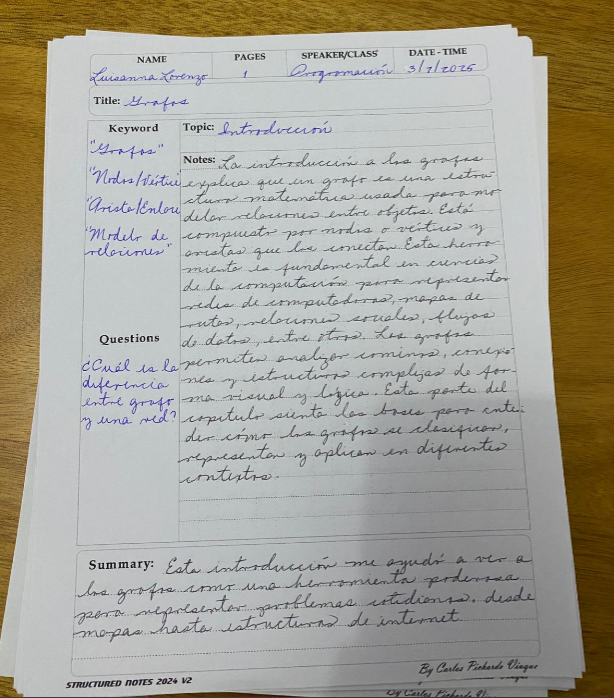 NAME PAGES SPEAKER/CLASS DATE - TIME
Luisanna Lorenzo 1 Programación 3/7/2025
Title: Grafos
Keyword
"Grafos"
"Nodos/Vértice
"Arista/Enlace
"Modelo de
relaciones"
Questions
¿Cuál es la
diferencia
entre grafo
y una red?
Topic: Introducción
Notes: La introducción a los grafos
explica que un grafo es una estru
ctura matemática usada para mo
delar relaciones entre objetos. Está
compuesto por nodos o vértices y
aristas que los conectan. Esta herra
mienta es fundamental en ciencias
de la computación para representar
redes de computadoras, mapas de
rutas, relaciones sociales, flujos
de datos, entre otros. Los grafos
permiten analizar caminos, conexio
nes y estructuras complejas de for-
ma visual y lógica. Esta parte del
capítulo sienta las bases para enten
der cómo los grafos se clasifican,
representan y aplican en diferentes
contextos.
Summary: Esta introducción me ayudó a ver a
los grafos como una herramienta poderosa
para representar problemas cotidianos, desde
mapas hasta estructuras de internet
STRUCTURED NOTES 2024 V2 By Carlos Pichardo Viuque
By Carlos Pichardo Viuque